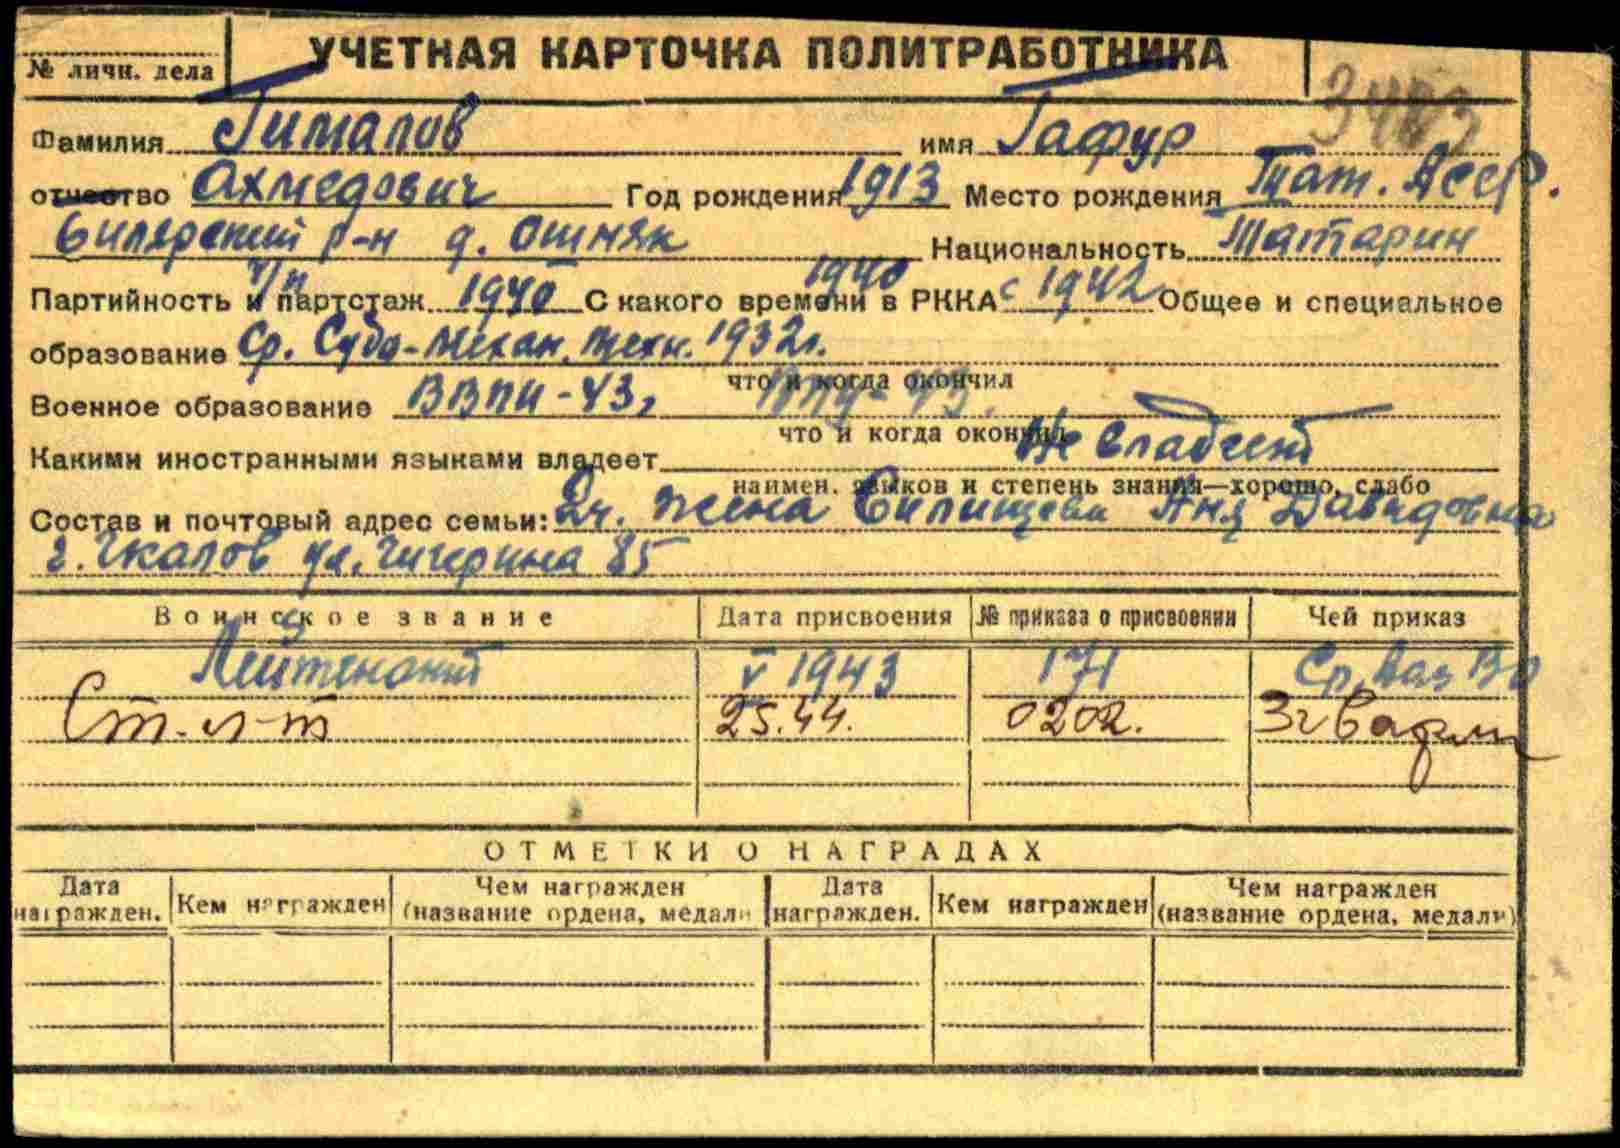 УЧЕТНАЯ КАРТОЧКА ПОЛИТРАБОТНИКА
№ личн. дела
Фамилия Гималов имя Гафур
отчество Ахмедович Год рождения 1913 Место рождения Тат. АССР.
Билярский р-н д. Ошняк Национальность Татарин
ч/п 1940
Партийность и партстаж 1940 С какого времени в РККА с 1942 Общее и специальное
образование Ср. Судо-механ. техн. 1932г.
что и когда окончил
Военное образование ВВПИ-43, ВПУ-43.
что и когда окончил
Какими иностранными языками владеет Не владеет
наимен. языков и степень знания—хорошо, слабо
Состав и почтовый адрес семьи: 2ч. жена Давидовна
г. Чкалов ул. Чичерина 85
Воинское звание Дата присвоения № приказа о присвоении Чей приказ
Лейтенант V 1943 171 Ср. Аз ВО
Ст. л-т 25.44. 0202. 3 гв армии
ОТМЕТКИ О НАГРАДАХ
Дата награжден. Кем награжден Чем награжден (название ордена, медали Дата награжден. Кем награжден Чем награжден (название ордена, медали)